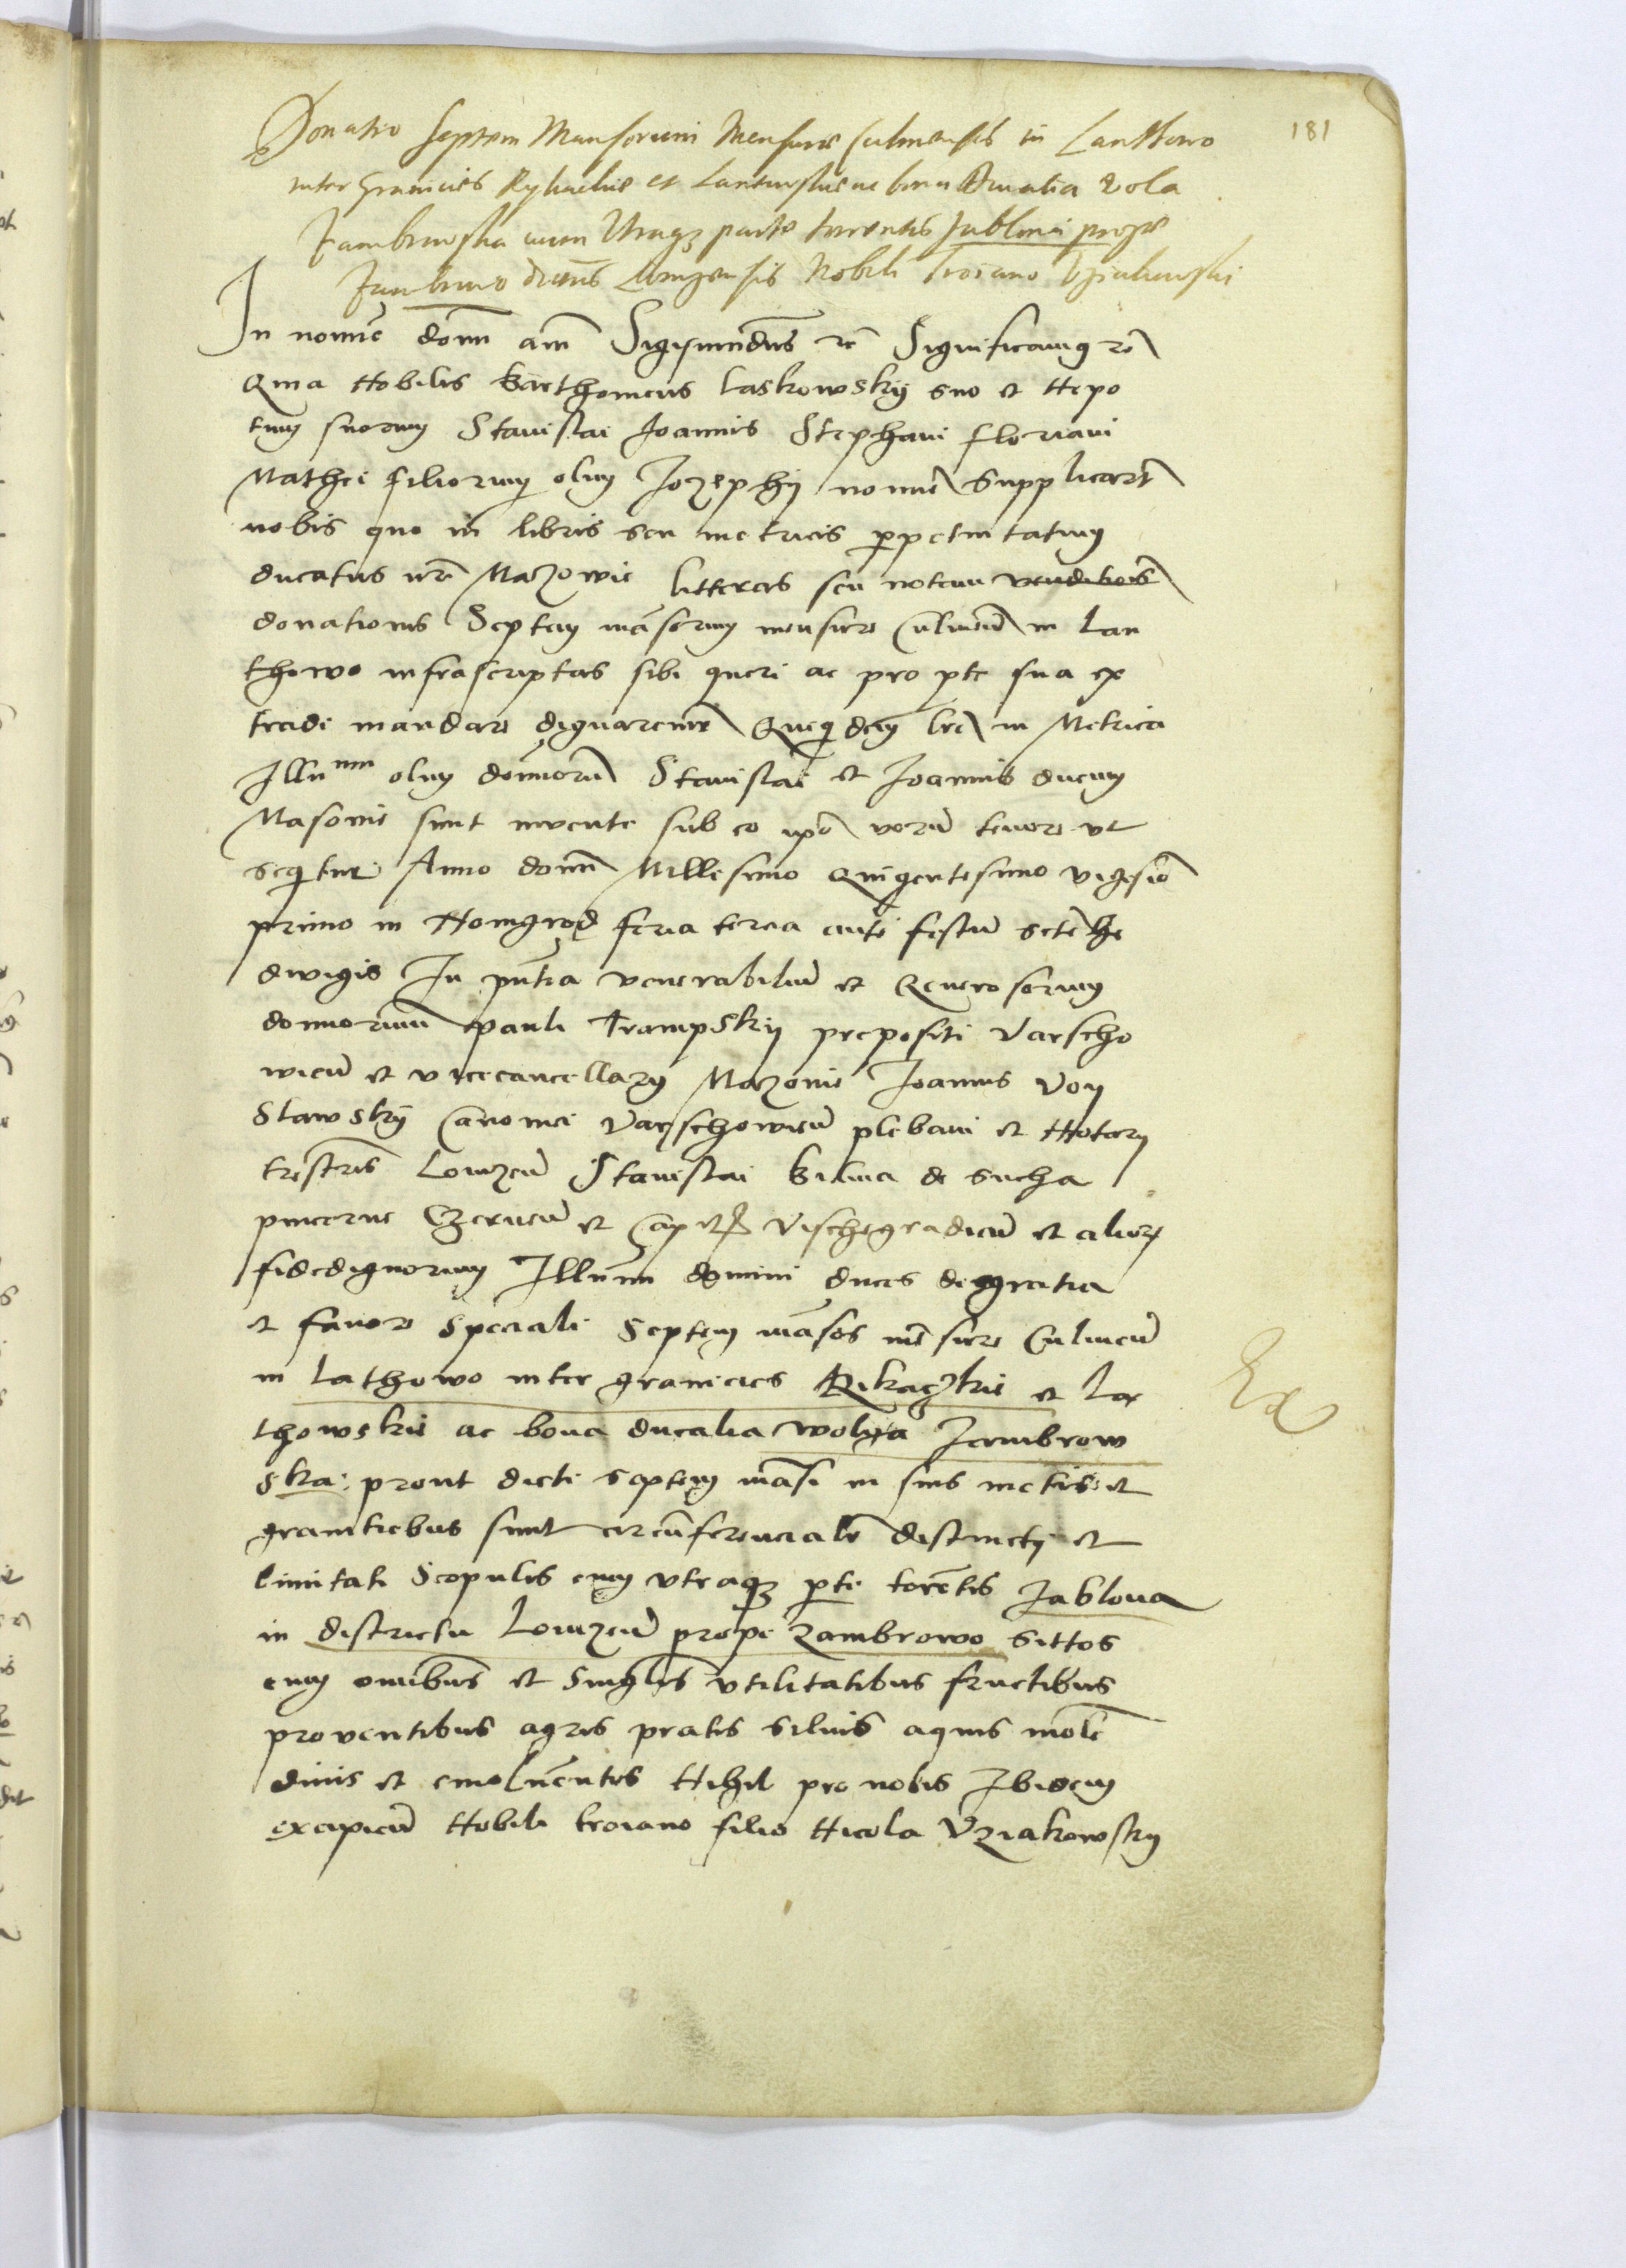 181
Donatio Septem Mansorum Mensurae Culmensis in Lanttowo
inter Granicies Rykackie et Lantowskie ac bona Ducalia Vola
Zambrowska cum Utraq3 parte torrentis Jablona prope
Zambrowo districtus Lomzensis Nobili Troiano Uziakowski
In nomine domi am Sigismundus rc Significamus rc
Qma Nobilis Barthomeus Laskowskÿ suo et Nepo
tum suorum Stanislai Joannis Stephani Floriani
Mathei filiorum olim Jozephÿ nomine Supplicart
nobis quo in libris seu metricis ppetuitatum
ducatus nri Mazowie litteras seu notam venditois
donationis Septem mãsorum mensure Culmeñ in Lan
thowo infrascriptas sibi queri ac pro pte sua ex
tradi mandare dignaremur Queqdem lre in Metrica
Illu mm olim dominorum Stanislai et Joannis ducum
Masovie sunt invente sub eo ipo verũ tenore ut
seqtur Anno domi Millesimo Quingentesimo vigesio
primo in Nowigrod feria tercia ante festũ scte he
dwigis In pñtia venerabiliũ et Generosorum
dominorum Pauli Trampskÿ prepositi Varscho
wieñ et vicecancellarÿ Mazovie Joannis Voy
slawskÿ Canonici Varschowieñ plebani et Notarÿ
trestris Lomzeñ Stanislai Bilina de Sucha
pincerne Czerneñ et Capitei Vischegradieñ et alior
fidedignorum Illũmi domini duces de gratia
et favore speciali Septem mãsos mẽsure Culmeñ
in Lathowo inter granicies Rikaczkie et La
thowskie ac bona ducalia Wolya Zambrow
ska: prout dicti septem mãsi in suis metis et
granitiebus sunt circũferencialr distincti et
limitati Scopulis cum utraq3 pte torẽtis Jablona
in districtu Lomzeñ prope Zambrowo sittos
cum omibus et singlis utilitatibus fructibus
proventibus agris pratis silvis aquis molẽ
dinis et emolumẽntis Nihil pro nobis Ibidem
excipieñ Nobili troiano filio Nicolai Uziakowskÿ
Ex